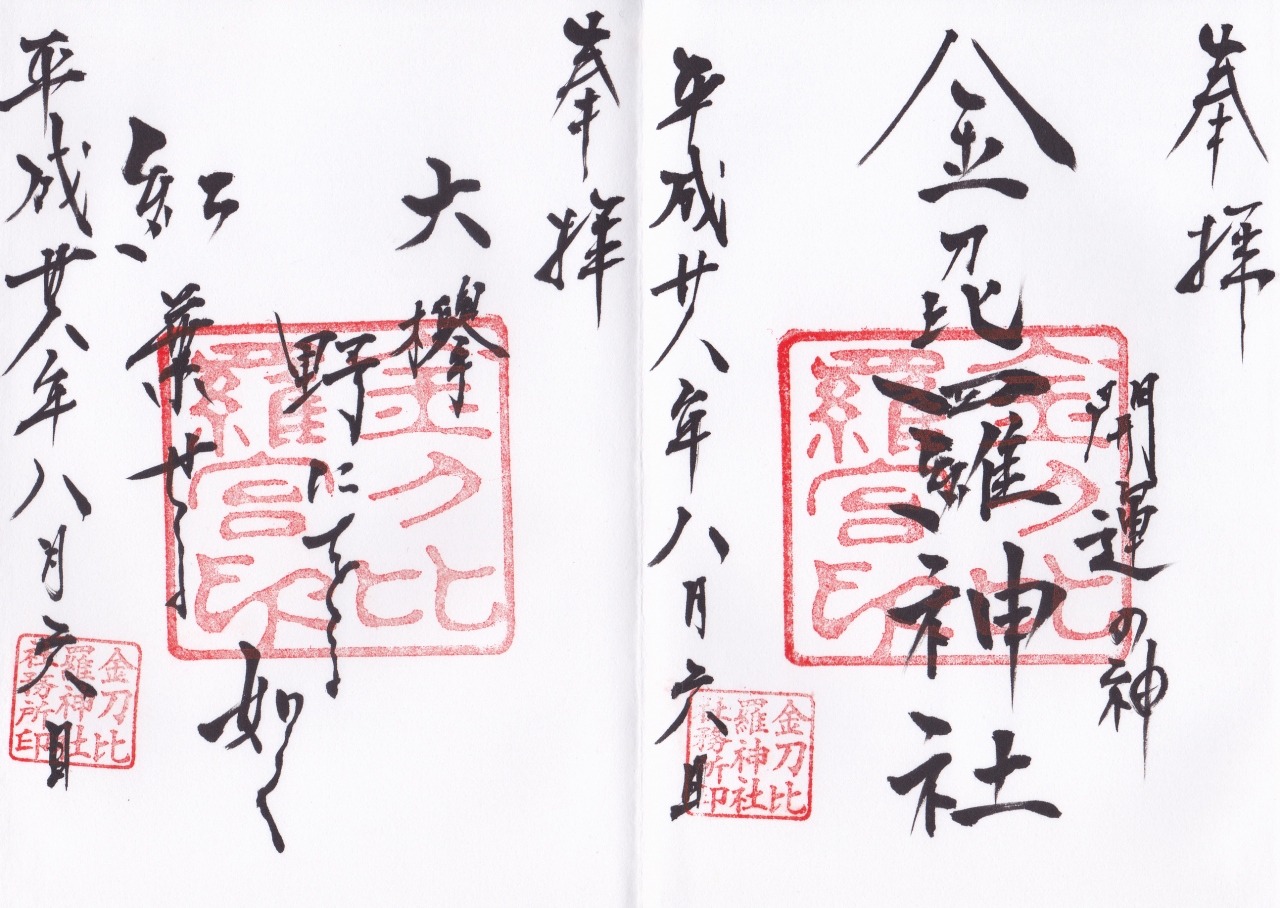 奉拝
開運の神
金刀比羅神社
金刀比
羅宮印
平成廿八年八月六日
金刀比
羅神社
社務所印
奉拝
大欅
野に
如く
紅葉せ
金刀比
羅宮印
平成廿八年八月六日
金刀比
羅神社
社務所印